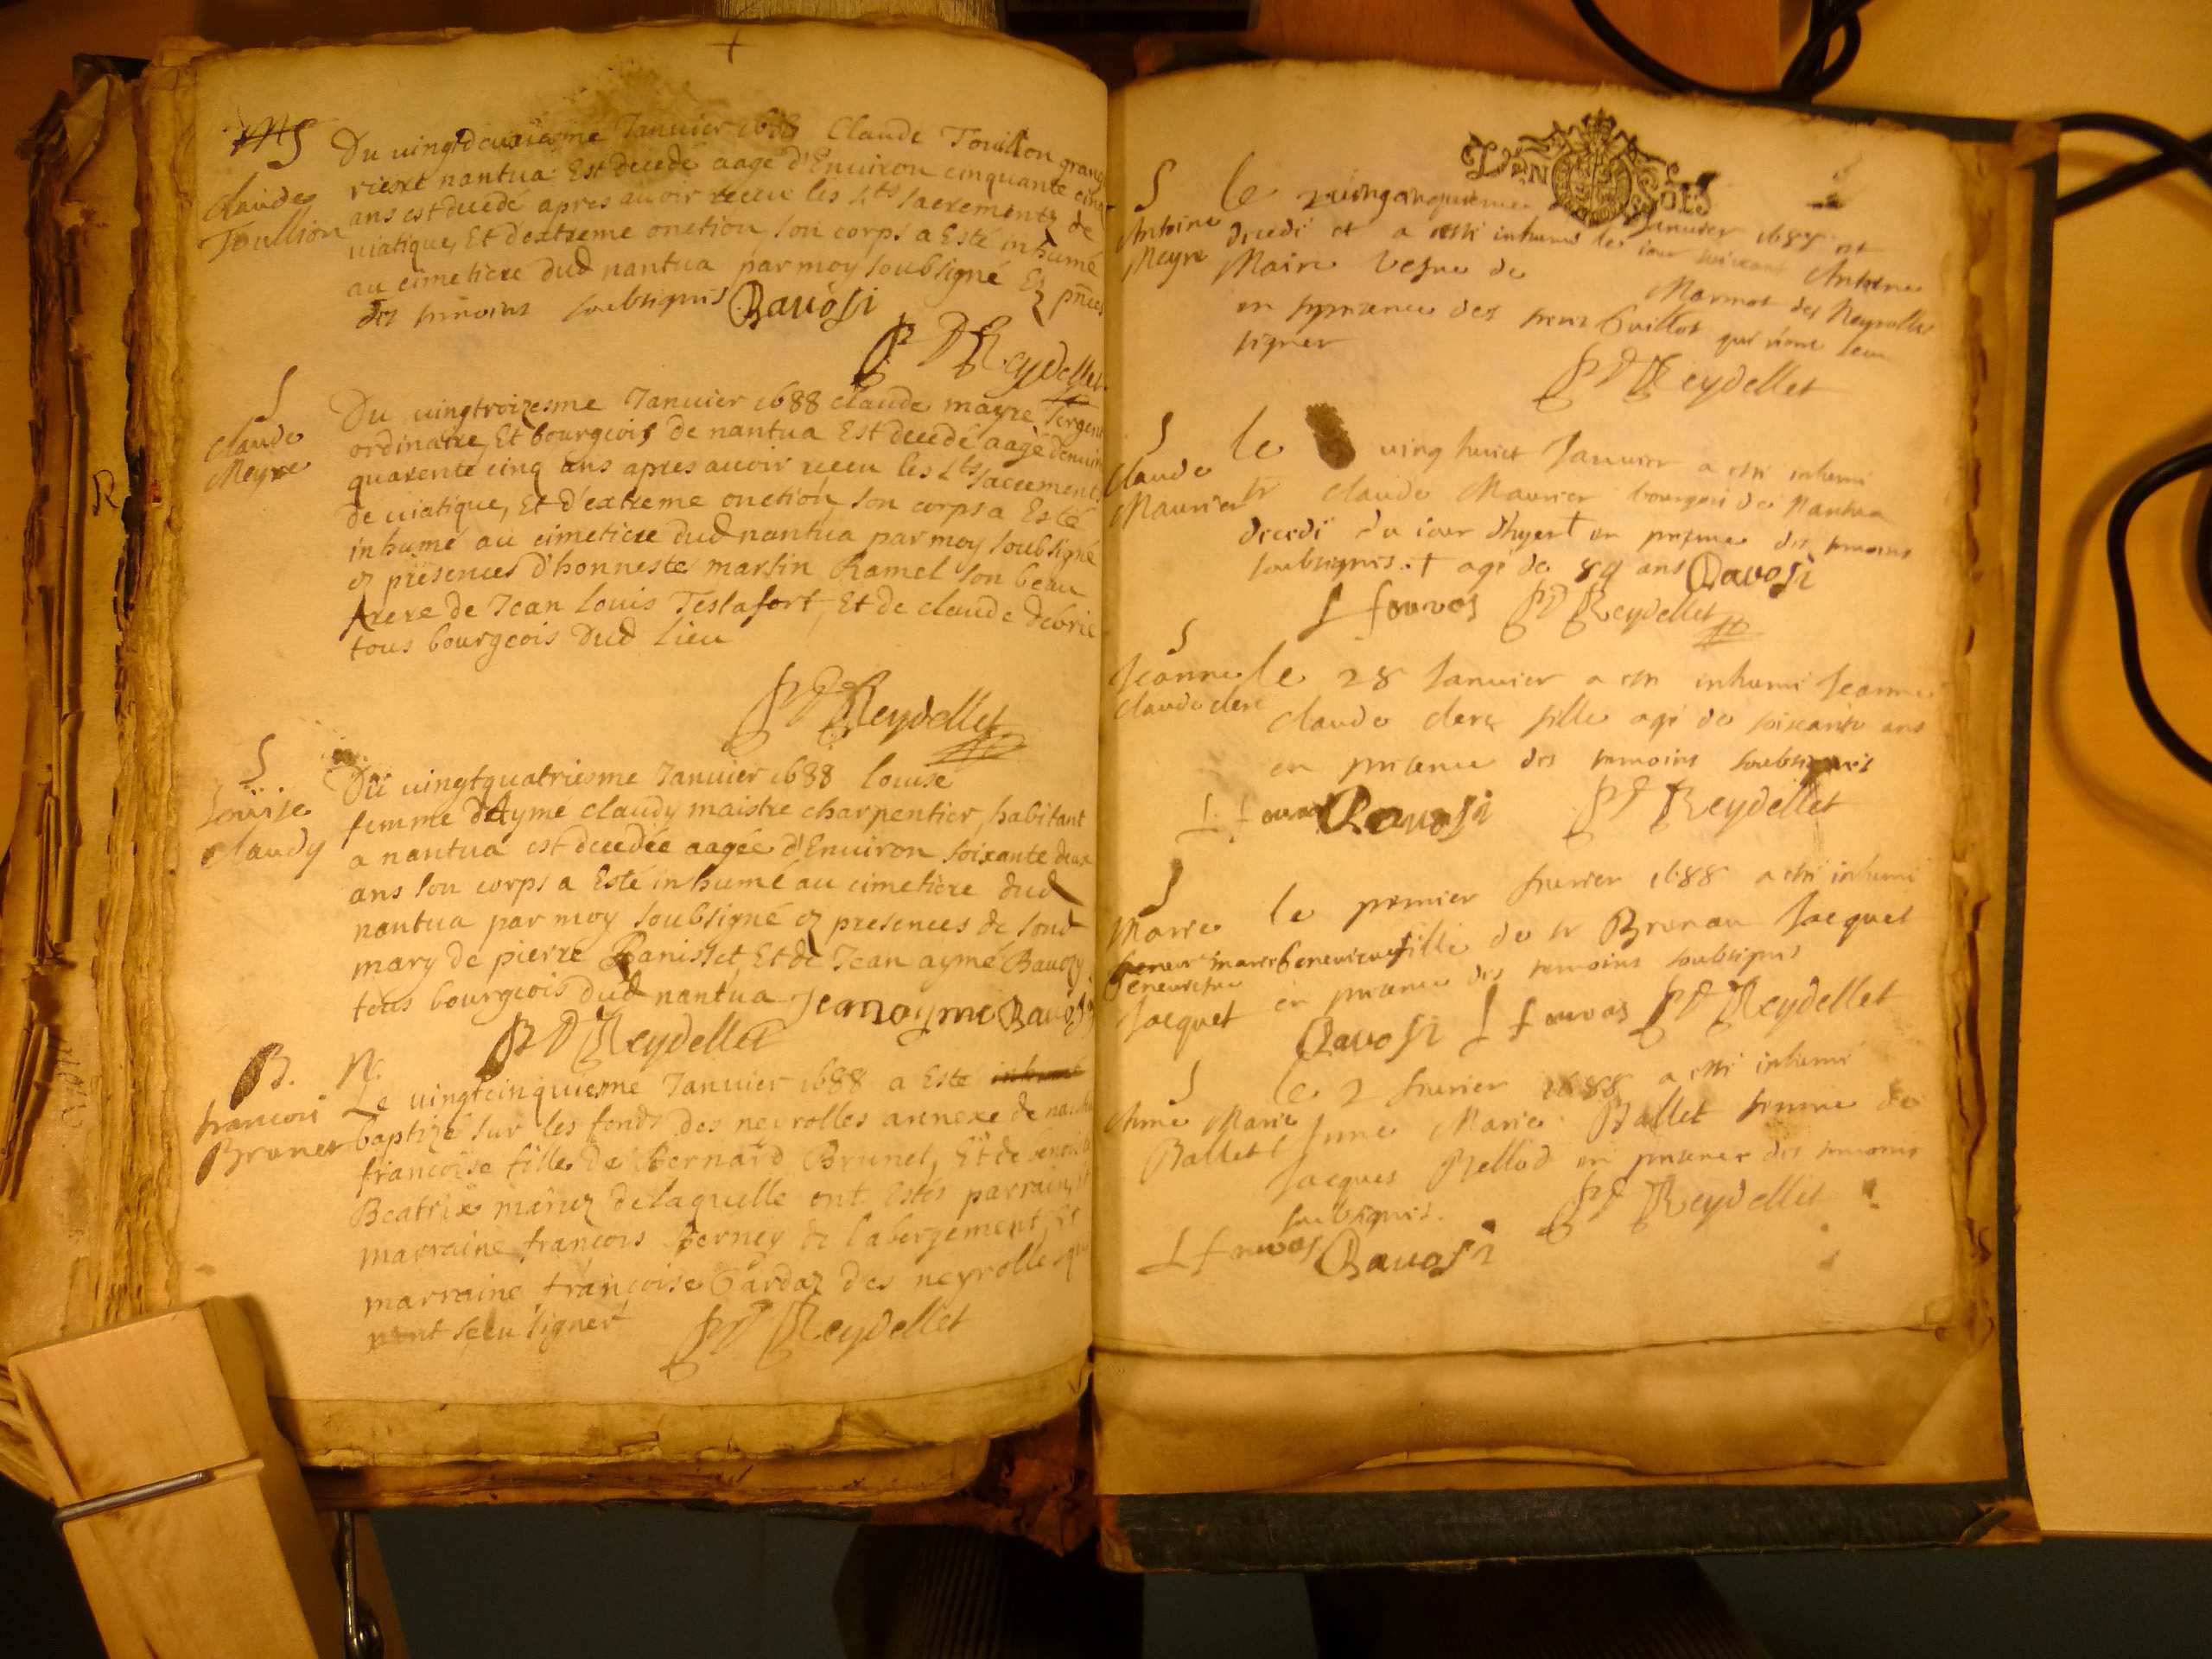 S
Claude
Toullion
Du vingtdeuxiesme Janvier 1688 Claude Touillon
nantua Est decedé aagé d'Environ cinquante cinq
ans est decedé apres avoir receu les Sts sacrements de
viatique, Et d'extreme onction son corps a Esté inhumé
au cimetiere dud nantua par moy soubsigné
soubsignés Ravosi
Reydellet
S
Claude
Meyre
Du vingtroizesme Janvier 1688 claude mayre sergent
ordinaire Et bourgeois de nantua Est decedé aagé
quarente cinq ans apres avoir receu les Sts sacrements
de viatique, Et d'extreme onction son corps a Esté
inhumé au cimetiere dud nantua par moy soubsigné
presences d'honneste martin Ramel son beau
frere de Jean louis Testafort, Et de claude debrie
tous bourgeois dud lieu
Reydellet
S
Louise
Claudy
Du vingtquatriesme Janvier 1688 louise
femme d'Ayme claudy maistre charpentier, habitant
a nantua est decedée aagée d'Environ soixante deux
ans son corps a Esté inhumé au cimetiere dud
nantua par moy soubsigné presences de sond
mary de pierre Et de Jean aymé Bavozy
tous bourgeois dud nantua Jean ayme Bavosy
Reydellet
B.
francoise
Brunet
N.
Le vingtcinquiesme Janvier 1688 a Este inhumé
baptizé sur les fonds des neyrolles annexe de
francoise fille de Bernard Brunet, Et de
Beatrix mariez de laquelle ont Estés parrain
marraine francois berney de l'abergement Et
marraine françoise Gardaz des neyrolles
seeu signer
Reydellet
R
DEN
SOLS
S
Antoine
Meyre
le
Janvier
decedé et a esté inhumé le jour suivant Antoine
Maire Vefve de Marmot des Neyrolles
en presence des Guillot qui n'ont seu
signer
Reydellet
S
Claude
Maurier
le ving huict Janvier a esté inhumé
sr claude Maurier bourgeois de Nantua
decedé du jour d'hyert en presence des temoins
soubsignés. + agé de 84 ans Ravosi
Reydellet
S
Jeanne
Claude clerc
le 28 Janvier a esté inhumé Jeanne
claude clerc fille agé de soixante ans
en presence des temoins soubsignés
Ravosi Reydellet
S
Marie
Genevieve
Jacquet
le premier fevrier 1688 a esté inhumé
marie Genevieve fille de sr Brunau Jacquet
en presence des temoins soubsignés
Ravosi Reydellet
S
Anne Marie
Ballet
le 2 fevrier 1688 a esté inhumé
Anne Marie Ballet femme de
Jacques Mellod en presence des temoins
soubsignés.
Reydellet
Ravosi